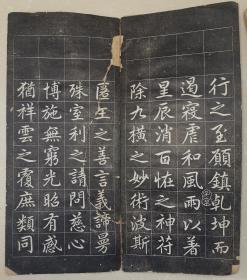 行之至願鎮乾坤而
遏寢虐和風雨以著
星辰消百恠之神符
除九橫之妙術波斯
匿王之善言義諦曼
殊室利之請問慈心
博施無窮光昭有感
猶祥雲之覆庶類同